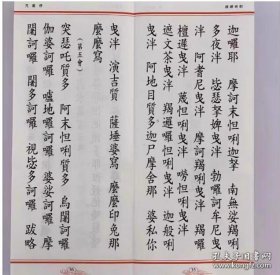 迦囉耶 摩訶末怛唎迦拏 南無娑羯唎
多夜泮 毖瑟拏婢曳泮 勃囉訶牟尼曳
泮 阿耆尼曳泮 摩訶羯唎曳泮 羯囉
檀遲曳泮 蔑怛唎曳泮 嘮怛唎曳泮
遮文茶曳泮 羯邏囉怛唎曳泮 迦般唎
曳泮 阿地目質多迦尸摩舍那 婆私你
曳泮 演吉質 薩埵婆寫 麼麼印兔那
麼麼寫
(第五會)
突瑟吒質多 阿末怛唎質多 烏闍訶囉
伽婆訶囉 嚧地囉訶囉 婆娑訶囉 摩
闍訶囉 闍多訶囉 視毖多訶囉 跋略